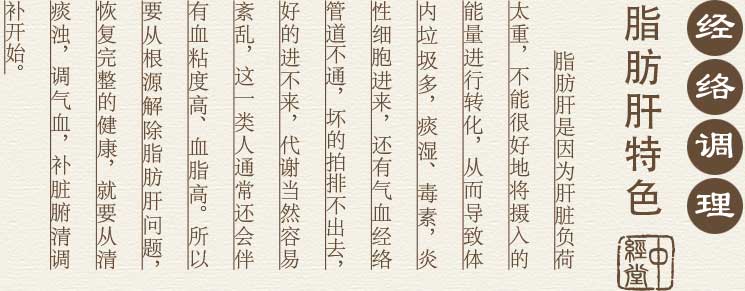 经络调理
脂肪肝特色
中經堂
脂肪肝是因为肝脏负荷
太重，不能很好地将摄入的
能量进行转化，从而导致体
内垃圾多，痰湿、毒素，炎
性细胞进来，还有气血经络
管道不通，坏的拍排不出去，
好的进不来，代谢当然容易
紊乱，这一类人通常还会伴
有血粘度高、血脂高。所以
要从根源解除脂肪肝问题，
恢复完整的健康，就要从清
痰浊，调气血，补脏腑清调
补开始。